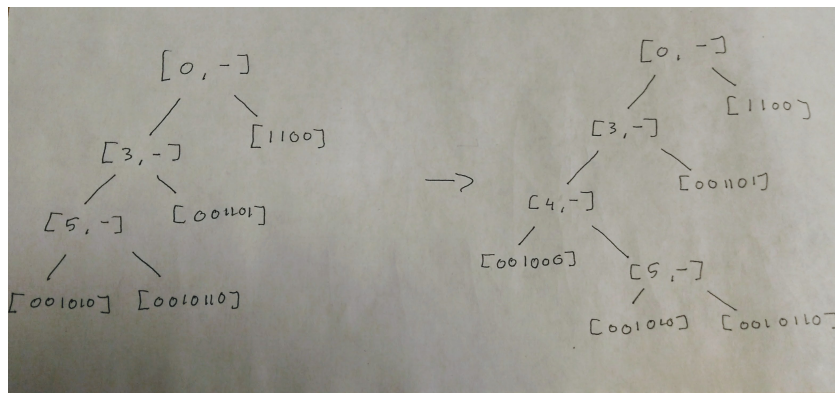 [0,-]
[3,-] [1100]
[5,-] [001101]
[001010] [0010110]
→
[0,-]
[3,-] [1100]
[4,-] [001101]
[001000] [5,-]
[001010] [0010110]